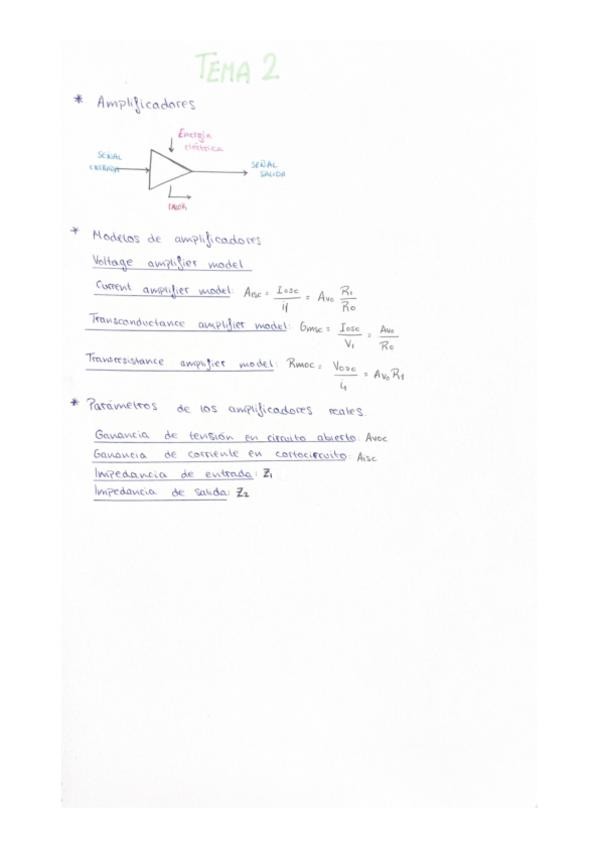 TEMA 2
* Amplificadores
Energía
eléctrica
SEÑAL
ENTRADA
SEÑAL
SALIDA
CALOR
* Modelos de amplificadores
Voltage amplifier model
Current amplifier model: AISC = Iosc / i1 = Avo Ri / Ro
Transconductance amplifier model: Gmsc = Iosc / V1 = Avo / Ro
Transresistance amplifier model: Rmoc = Vooc / i1 = Avo R1
* Parámetros de los amplificadores reales.
Ganancia de tensión en circuito abierto: Avoc
Ganancia de corriente en cortocircuito: AISC
Impedancia de entrada: Z1
Impedancia de salida: Z2